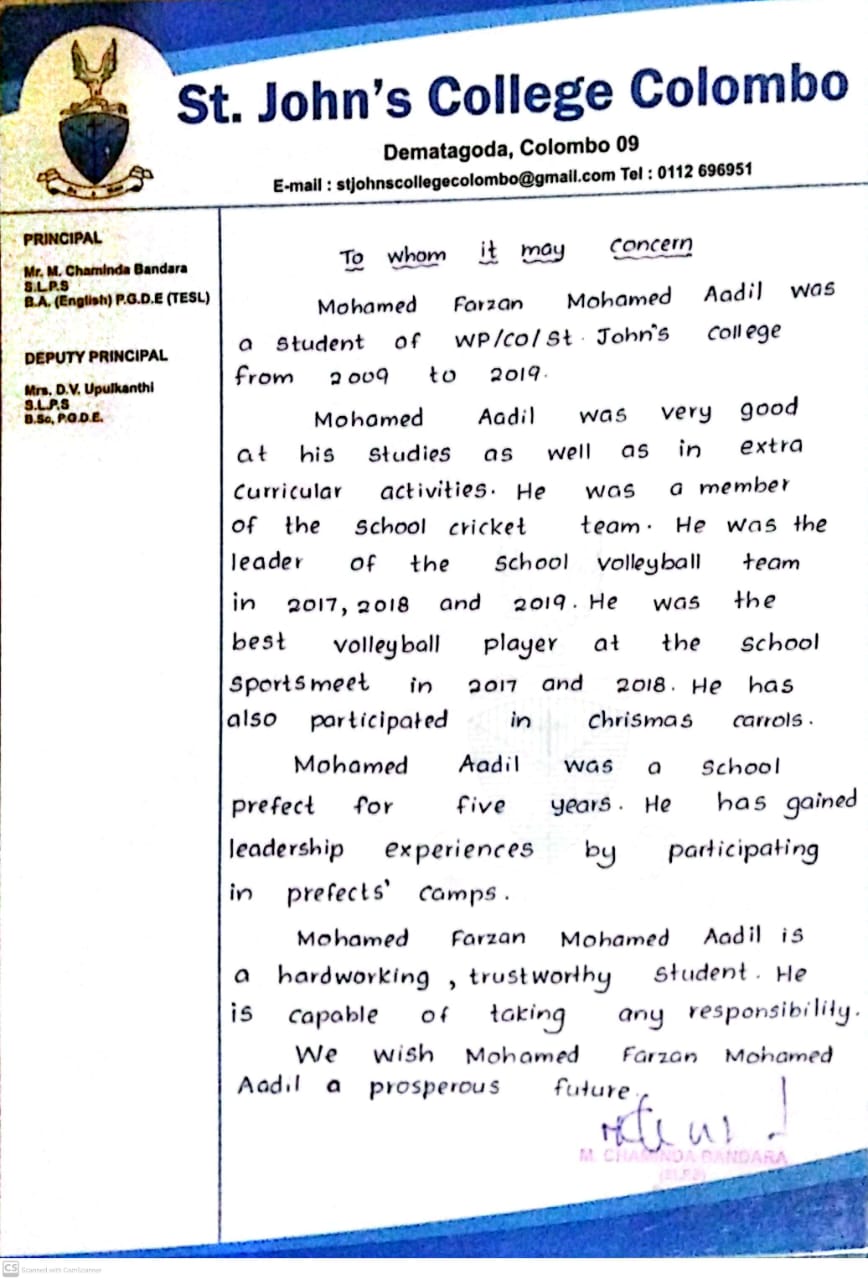 St. John's College Colombo
Dematagoda, Colombo 09
E-mail : stjohnscollegecolombo@gmail.com Tel : 0112 696951
PRINCIPAL
Mr. M. Chaminda Bandara
S.L.P.S
B.A. (English) P.G.D.E (TESL)
DEPUTY PRINCIPAL
Mrs. D.V. Upulkanthi
S.L.P.S
B.Sc, P.G.D.E.
To whom it may concern
Mohamed Farzan Mohamed Aadil was
a student of WP/CO/St. John's college
from 2009 to 2019.
Mohamed Aadil was very good
at his studies as well as in extra
curricular activities. He was a member
of the school cricket team. He was the
leader of the school volleyball team
in 2017, 2018 and 2019. He was the
best volleyball player at the school
sportsmeet in 2017 and 2018. He has
also participated in chrismas carrols.
Mohamed Aadil was a school
prefect for five years. He has gained
leadership experiences by participating
in prefects' camps.
Mohamed Farzan Mohamed Aadil is
a hardworking , trustworthy student. He
is capable of taking any responsibility.
We wish Mohamed Farzan Mohamed
Aadil a prosperous future.
M. CHAMINDA BANDARA
(SLPS)
CS Scanned with CamScanner